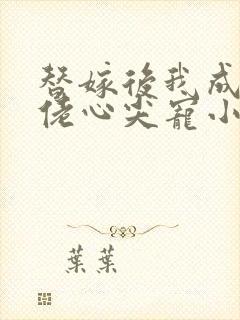 替嫁後我成
佬心尖寵小
葉葉